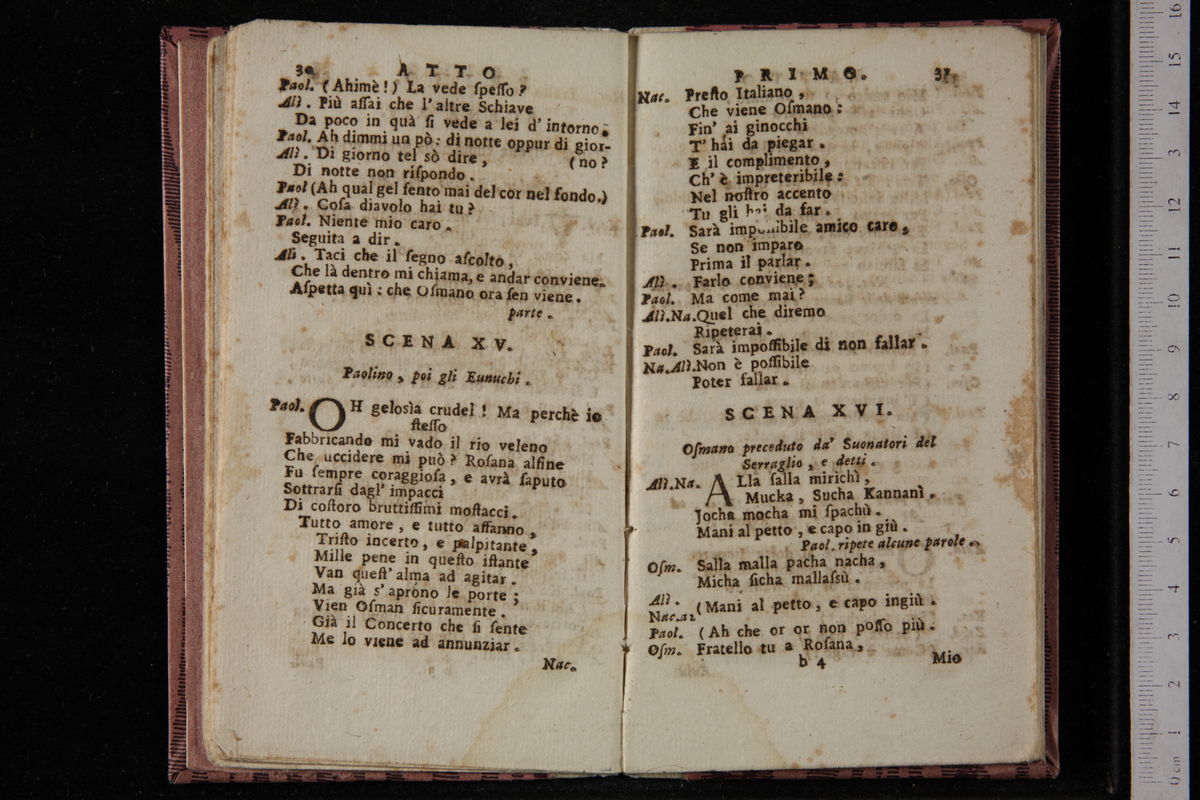 30 ATTO
Paol. (Ahimè!) La vede ſpeſſo?
Alì. Più aſſai che l'altre Schiave
Da poco in quà ſi vede a lei d'intorno.
Paol. Ah dimmi un pò: di notte oppur di gior-
Alì. Di giorno tel sò dire, (no?
Di notte non riſpondo.
Paol (Ah qual gel ſento mai del cor nel fondo.)
Alì. Coſa diavolo hai tu?
Paol. Niente mio caro.
Seguita a dir.
Alì. Taci che il ſegno aſcolto,
Che là dentro mi chiama, e andar conviene.
Aſpetta quì: che Oſmano ora ſen viene.
parte.
SCENA XV.
Paolino, poi gli Eunuchi.
Paol. OH geloſìa crudel! Ma perchè io
ſteſſo
Fabbricando mi vado il rio veleno
Che uccidere mi può? Roſana alfine
Fu ſempre coraggioſa, e avrà ſaputo
Sottrarſi dagl'impacci
Di coſtoro bruttiſſimi moſtacci.
Tutto amore, e tutto affanno,
Triſto incerto, e palpitante,
Mille pene in queſto iſtante
Van queſt'alma ad agitar.
Ma già s'aprono le porte;
Vien Oſman ſicuramente.
Già il Concerto che ſi ſente
Me lo viene ad annunziar.
Nac.
PRIMO. 31
Nac. Preſto Italiano,
Che viene Oſmano:
Fin' ai ginocchi
T'hai da piegar.
E il complimento,
Ch'è impreteribile:
Nel noſtro accento
Tu gli hai da far.
Paol. Sarà impoſſibile amico caro,
Se non imparo
Prima il parlar.
Alì. Farlo conviene;
Paol. Ma come mai?
Alì.Na. Quel che diremo
Ripeterai.
Paol. Sarà impoſſibile di non fallar.
Na.Alì. Non è poſſibile
Poter fallar.
SCENA XVI.
Oſmano preceduto da' Suonatori del
Serraglio, e detti.
Alì.Na. ALla ſalla mirichì,
Mucka, Sucha Kannanì.
Jocha mocha mi ſpachù.
Mani al petto, e capo in giù.
Paol. ripete alcune parole.
Oſm. Salla malla pacha nacha,
Micha ſicha mallaſsù.
Alì.
Nac.a2 (Mani al petto, e capo ingiù.
Paol. (Ah che or or non poſſo più.
Oſm. Fratello tu a Roſana,
b 4 Mio
0 cm 1 2 3 4 5 6 7 8 9 10 11 12 13 14 15 16